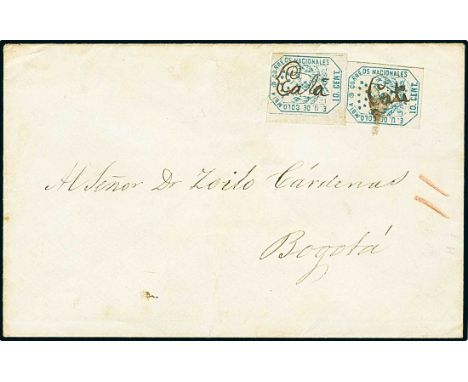 CORREOS NACIONALES
E. U. DE COLOMBIA
10. CENT.
Cali
CORREOS NACIONALES
E. U. DE COLOMBIA
10. CENT.
Cali
Al Señor Dr Zoilo Cárdenas
Bogotá